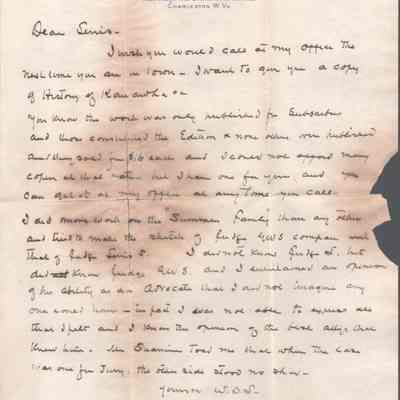 CHARLESTON W. VA
Dear Lewis -
I wish you would call at my office the
next time you are in town - I want to give you a copy
of History of Kanawha Co
You know the work was only published for Subscribers
and those consumed the Edition & none other were published
and they sold for $16 each and I could not afford many
copies at that rate but I have one for you and you
can get it at my office at any time you call.
I did more work on the "Summers" Family than any other
and tried to make the sketch of Judge GWS compare with
that of Judge Lewis S. I did not know Judge L. but
did know Judge G.W.S. and I entertained an opinion
of his ability as an Advocate that I did not imagine any
one could have - in fact I was not able to express all
that I felt and I know the opinion of the best attys that
knew him. told me that when the case
was one for Jury, the other side stood no show.
Yours &c